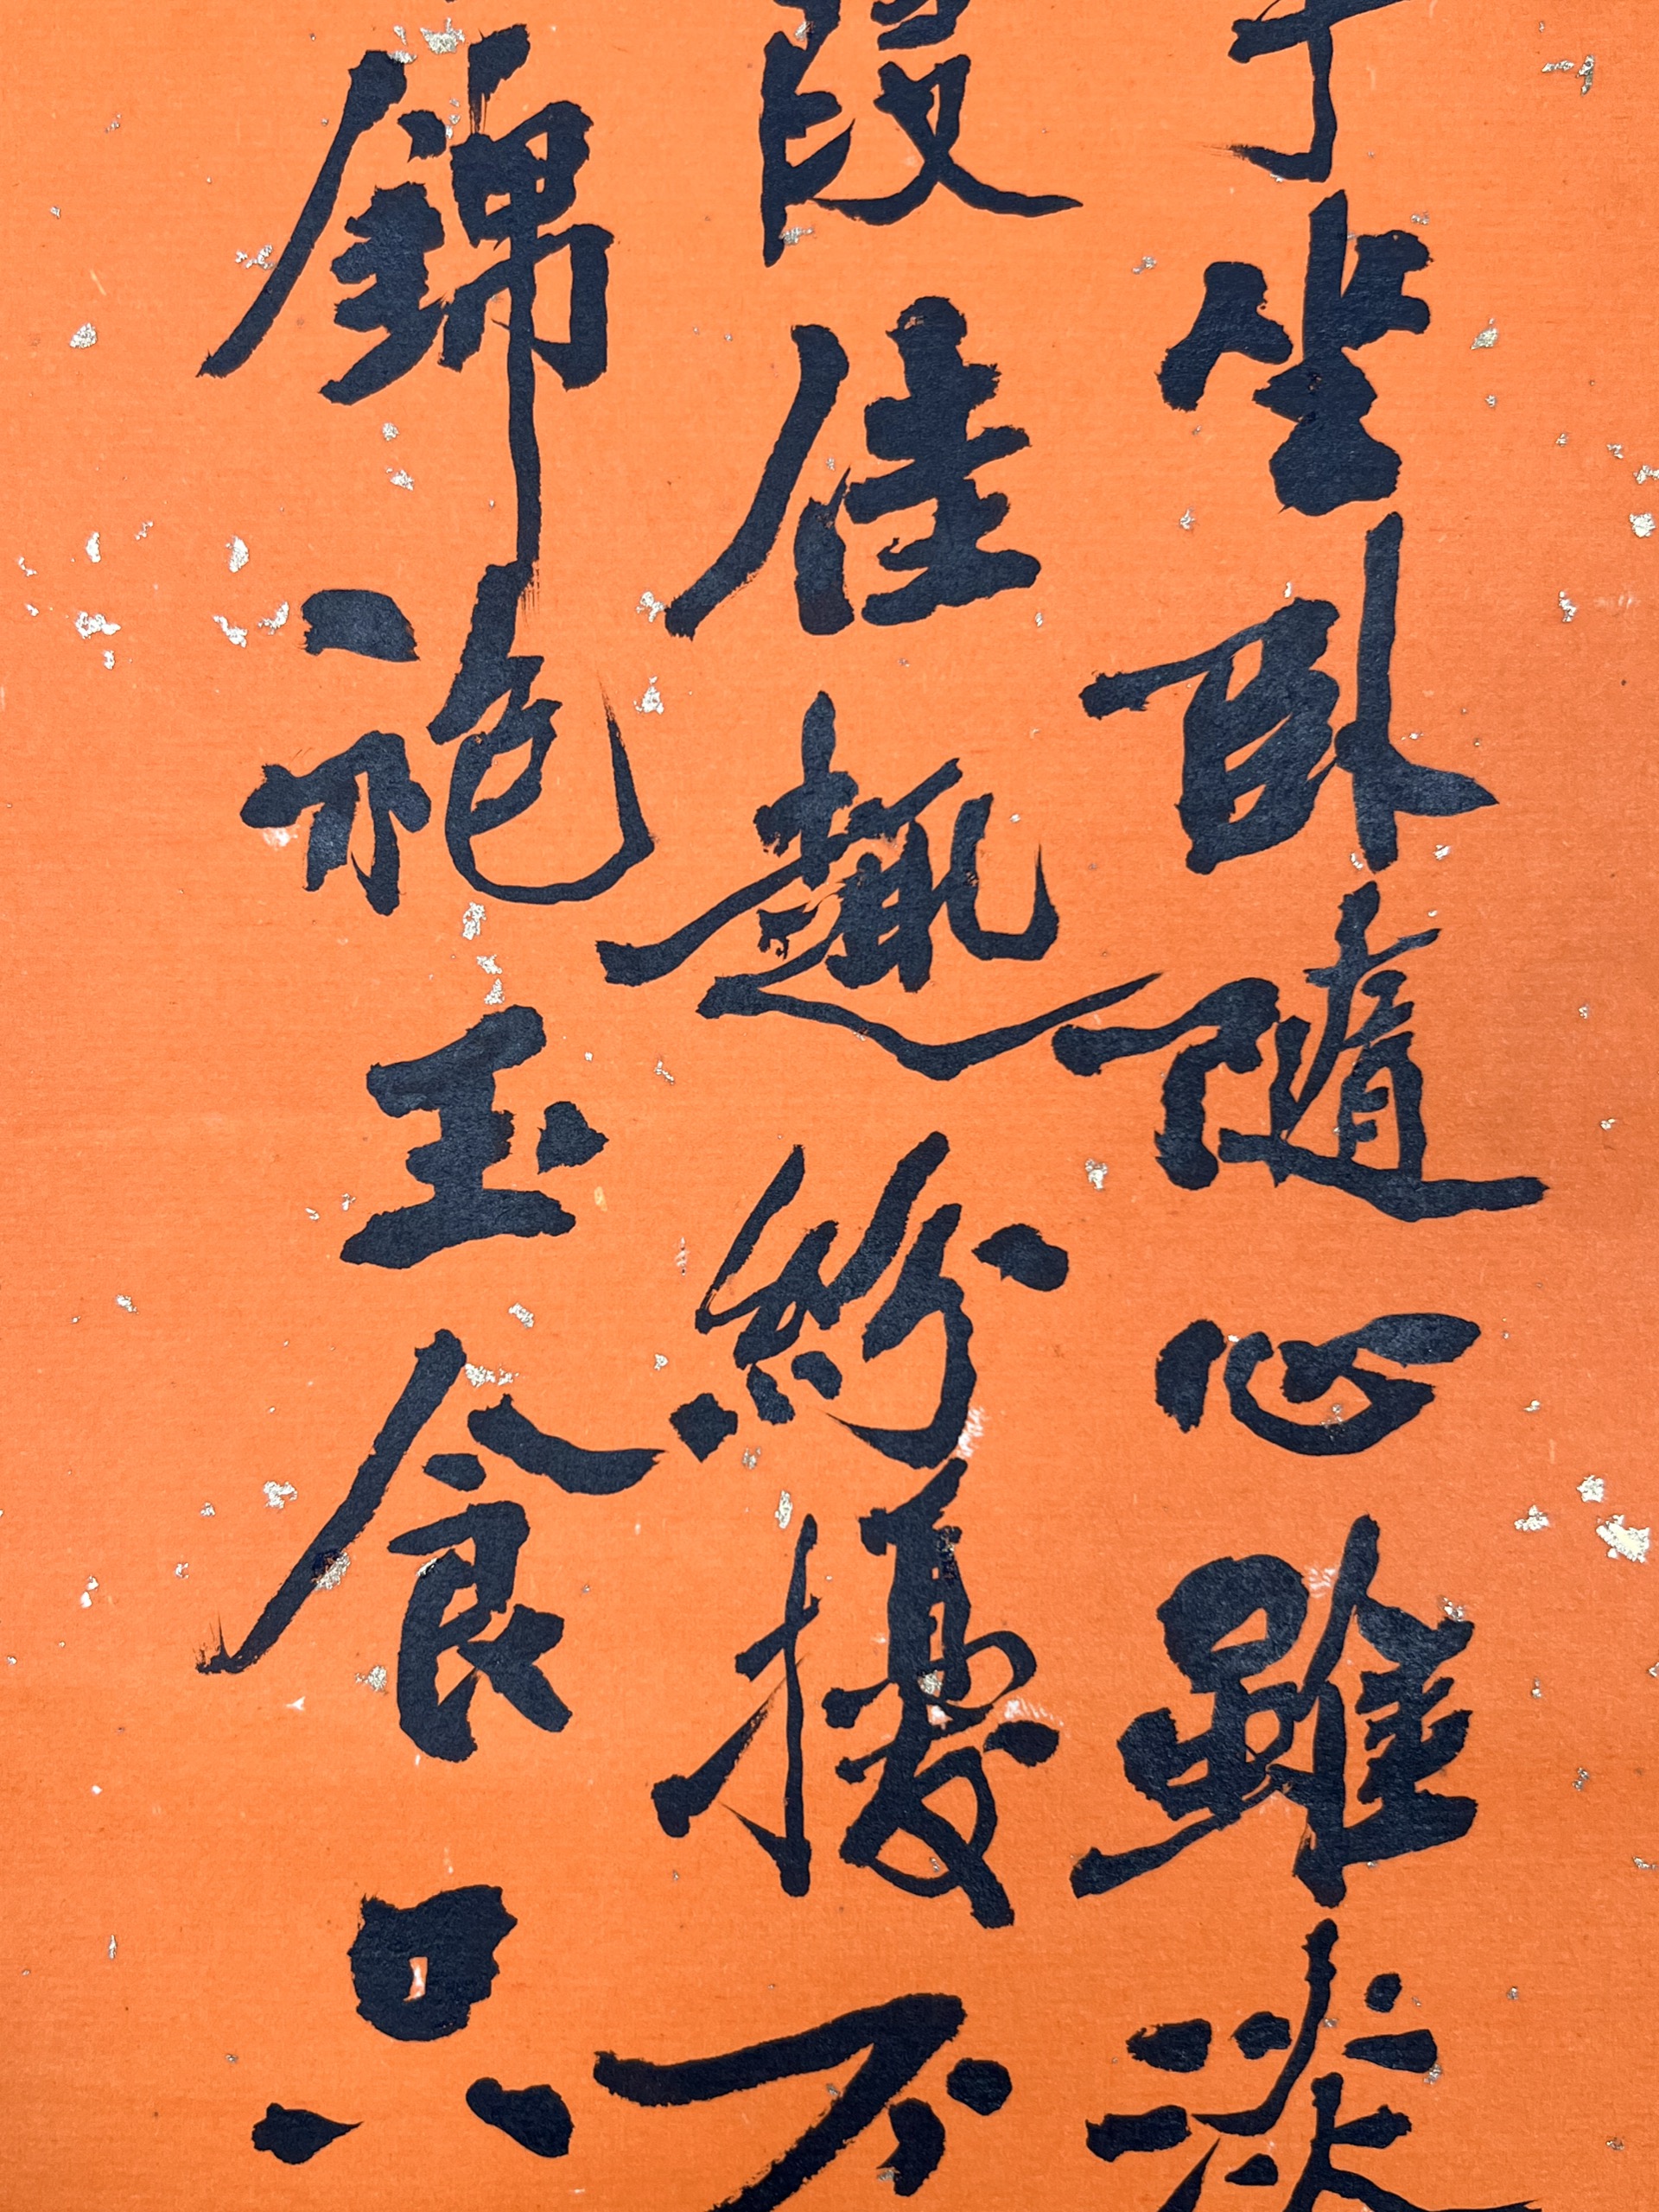 坐卧隨心雖淡
段佳趣紛擾不
錦袍玉食只